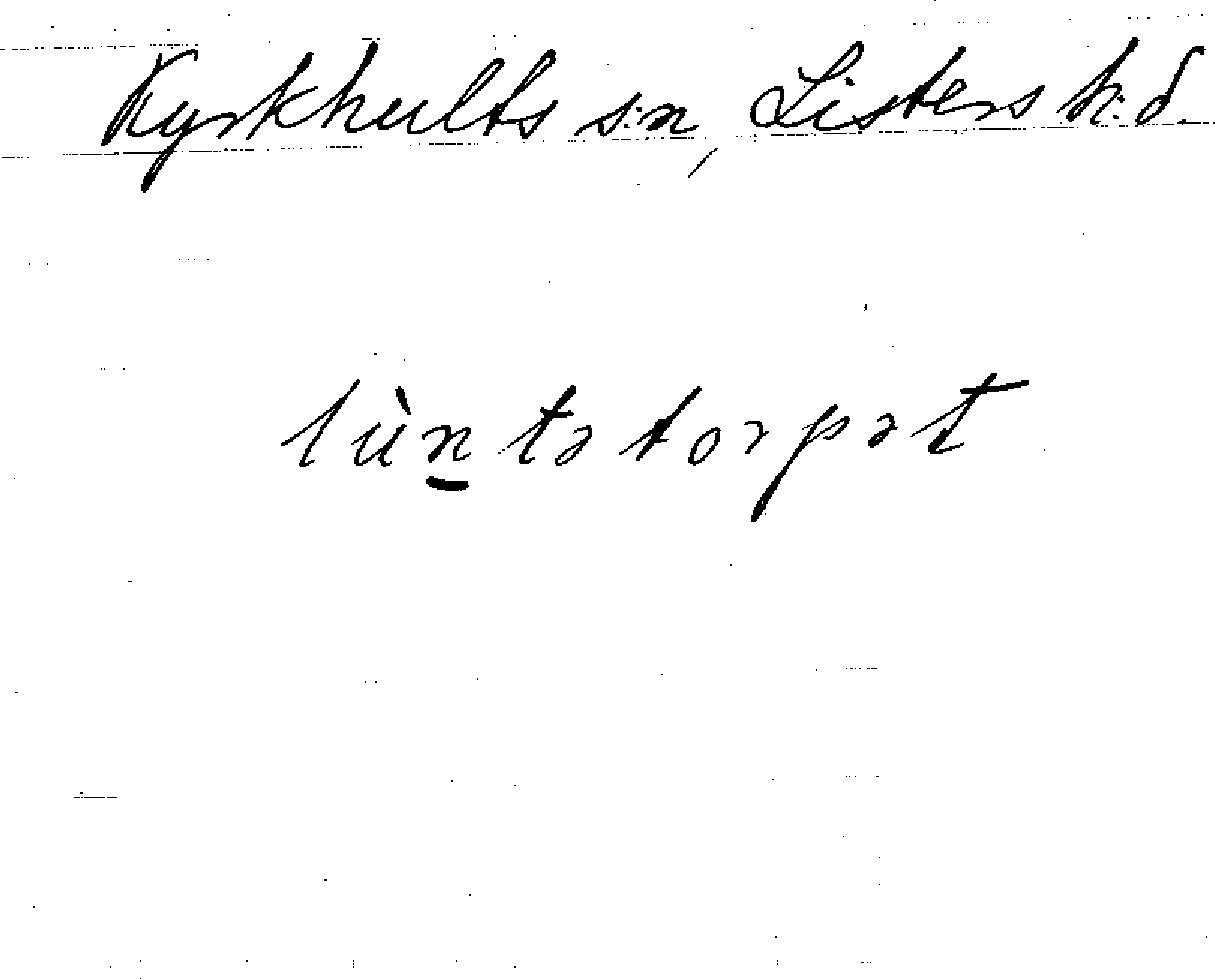 Kyrkhults s:n, Listers h:d.
lùn̲tətorpət